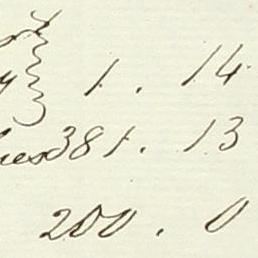 1 . 14
381 . 13
200 . 0